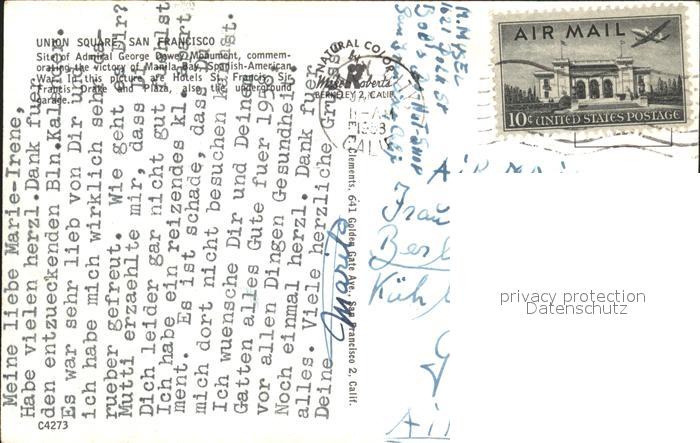 UNION SQUARE, SAN FRANCISCO
Site of Admiral George Dewey Monument, commem-
orating the victory of Manila Bay, Spanish-American
War. In this picture are Hotels St. Francis, Sir
Francis Drake and Plaza, also the underground
garage.
Meine liebe Marie-Irene,
Habe vielen herzl.Dank fuer
den entzueckenden Bln.Kalender.
Es war sehr lieb von Dir und
ich habe mich wirklich sehr da-
rueber gefreut. Wie geht es Dir?
Mutti erzaehlte mir, dass
Dich leider gar nicht gut fuehlst
Ich habe ein reizendes kl. Apart
ment. Es ist schade, dass Du
mich dort nicht besuchen kannst.
Ich wuensche Dir und Deinem
Gatten alles Gute fuer 1953
vor allen Dingen Gesundheit.
Noch einmal herzl. Dank fuer
alles. Viele herzliche Gruesse
Deine
C4273
NATURAL COLOR
by
Mike Roberts
BERKELEY 2, CALIF.
Clements, 641 Golden Gate Ave., San Francisco 2, Calif.
AIR MAIL
10¢ UNITED STATES POSTAGE
Frau
Berl
Küh
privacy protection
Datenschutz